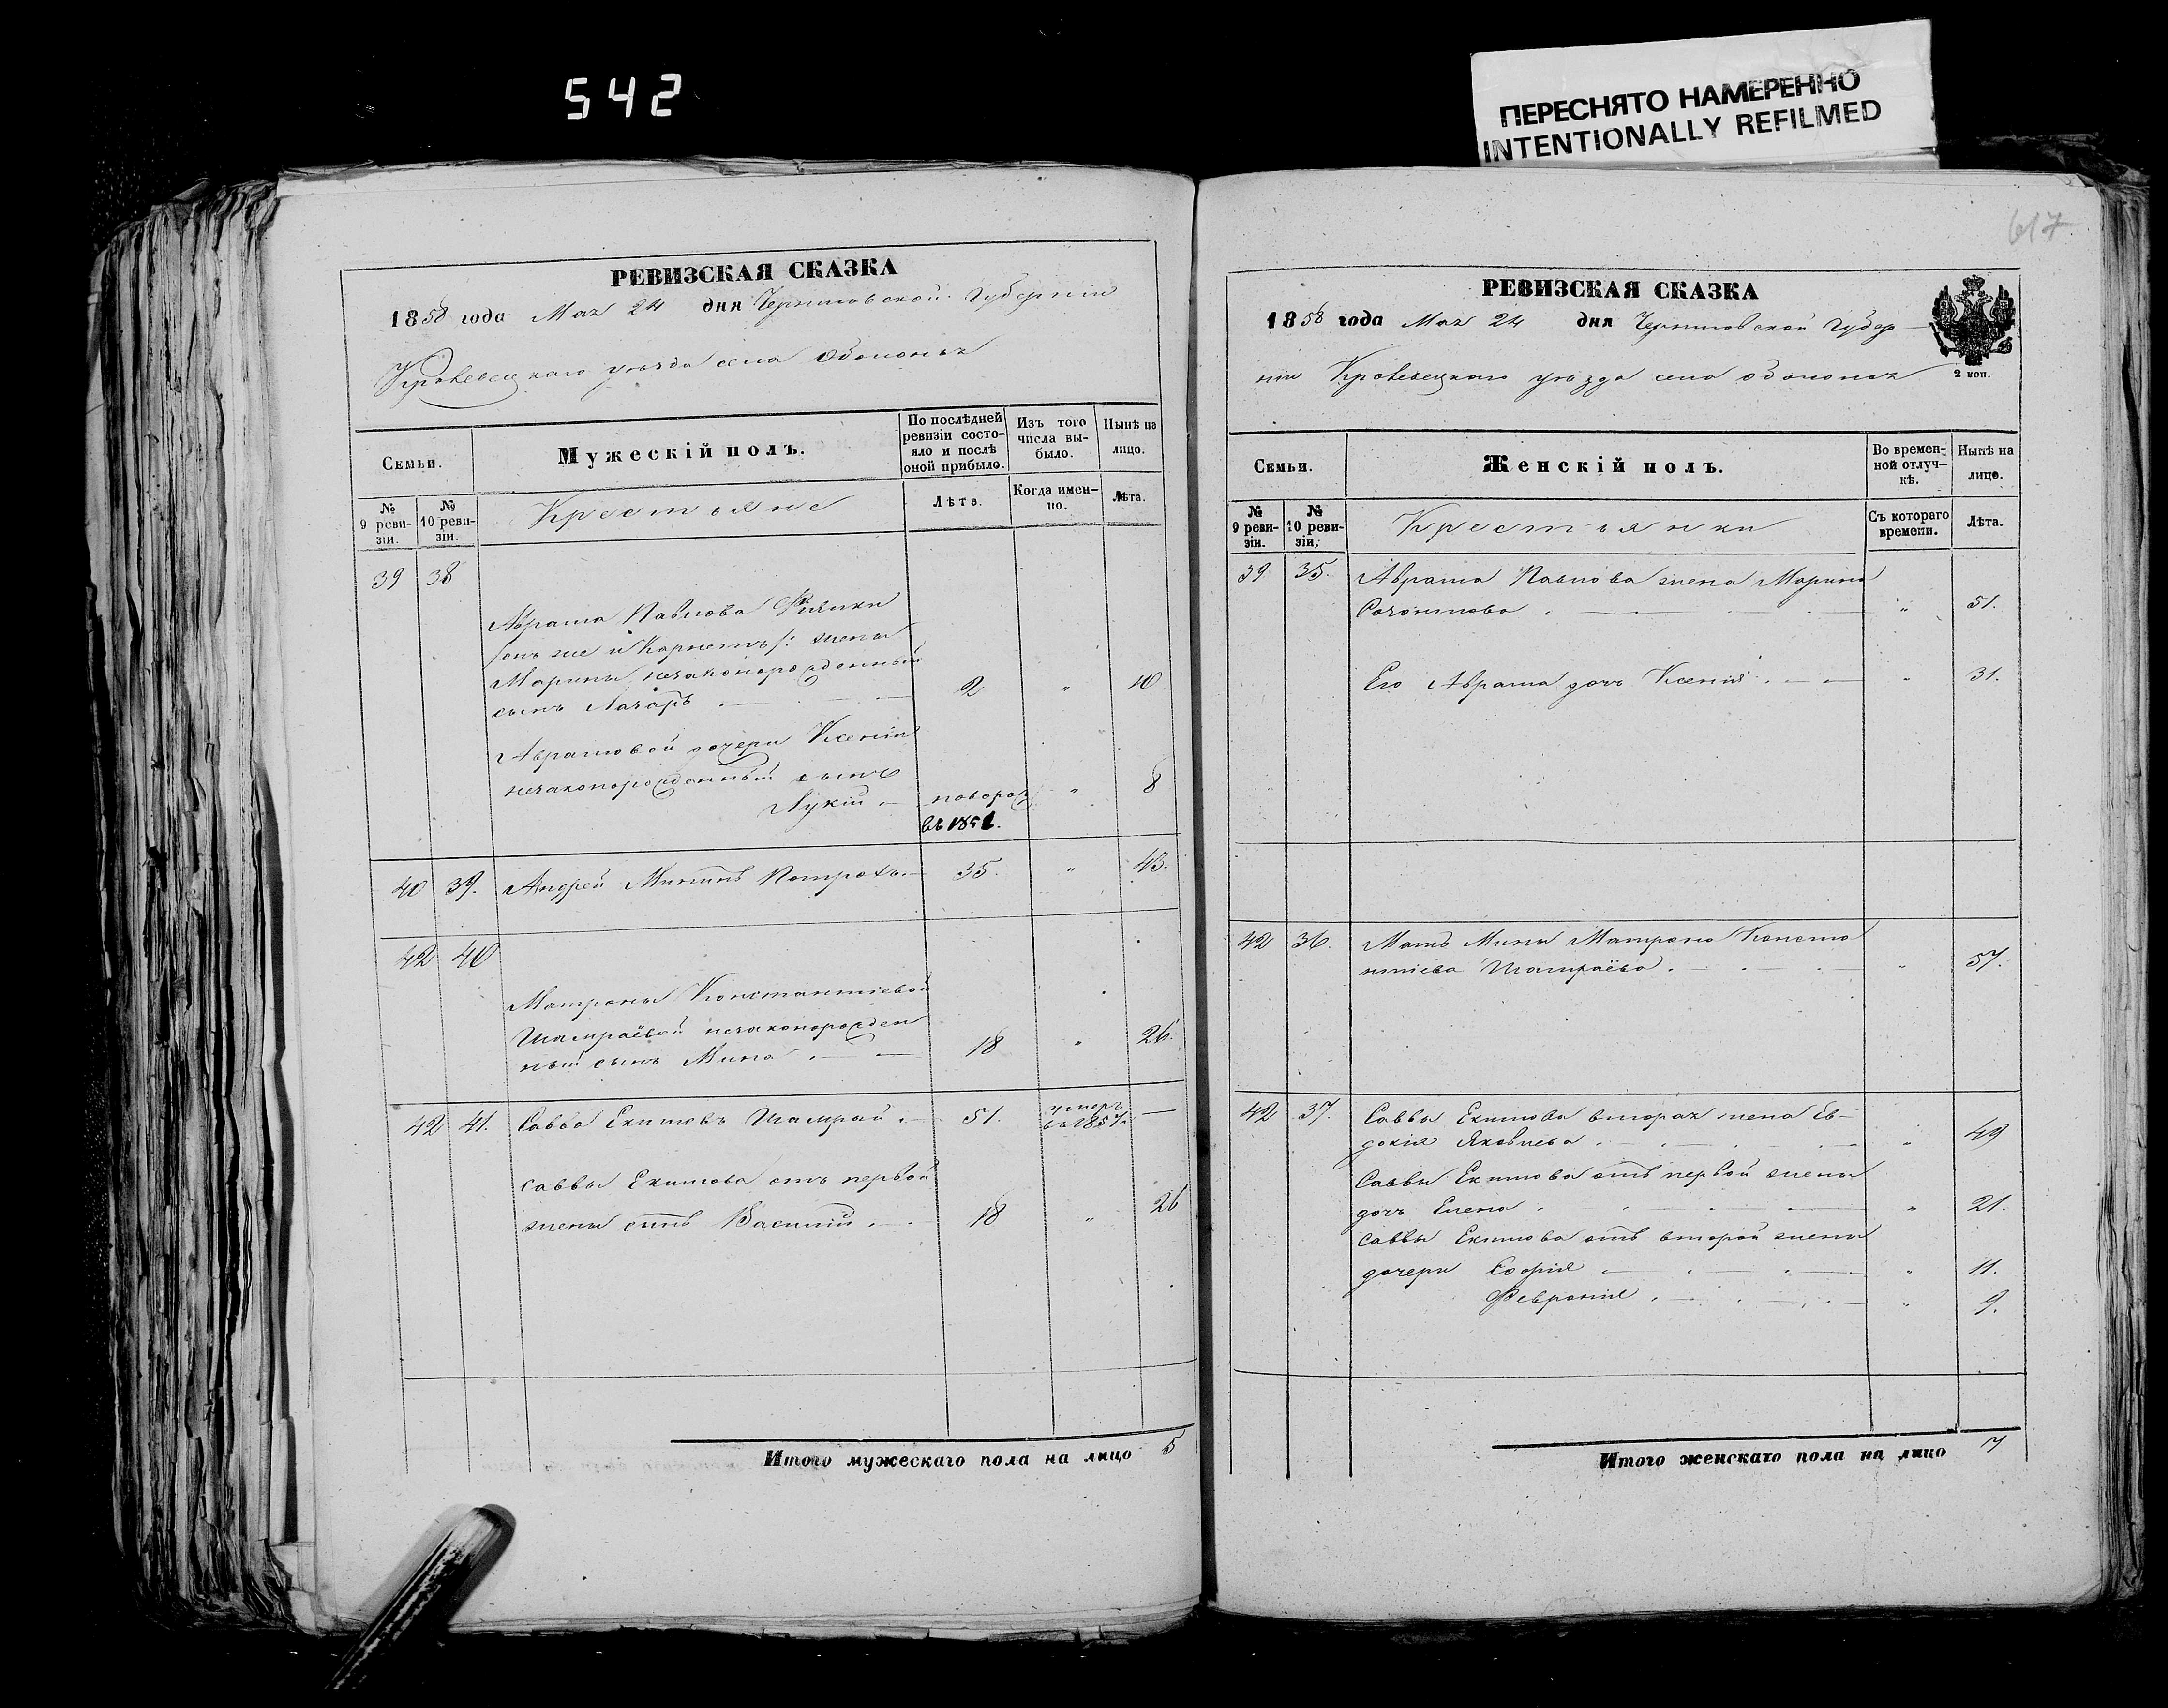 542
ПЕРЕСНЯТО НАМЕРЕННО
INTENTIONALLY REFILMED
617
РЕВИЗСКАЯ СКАЗКА
1858 года Мая 24 дня Черниговской Губерніи
Кролевецкаго уѣзда села Оболонья
Семьи.
Мужескій полъ.
По послѣдней ревизіи состояло и послѣ оной прибыло.
Изъ того числа выбыло.
Нынѣ на лицо.
№ 9 ревизіи.
№ 10 ревизіи.
Крестьяне
Лѣта.
Когда именно.
Лѣта.
39 38
Абрама Павлова
онъ же и Корнетъ/: жены
Марины незаконорожденный
сынъ Лазарь 2 " 10
Абрамовой дочери Ксеніи
незаконорожденный сынъ
Лукій новорож " 8
въ 1851.
40 39. Андрей Мининъ Потроха 35. " 43.
42 40
Матроны Константіевой
Шамраёвой незаконорожден
ный сынъ Мина 18 " 26.
42 41. Савва Екимовъ Шамрай 51. умеръ въ 1857. —
Саввы Екимова отъ первой
жены сынъ Василій 18 " 26
Итого мужескаго пола на лицо 5
РЕВИЗСКАЯ СКАЗКА
1858 года Мая 24 дня Черниговской Губер-
ніи Кролевецкаго уѣзда села Оболонья
2 коп.
Семьи.
Женскій полъ.
Во временной отлучкѣ.
Нынѣ на лицо.
№ 9 ревизіи.
№ 10 ревизіи.
Крестьянки
Съ котораго времени.
Лѣта.
39 35. Абрама Павлова жена Марина
Созонтова " 51.
Его Абрама дочь Ксенія " 31.
42 36. Мать Мины Матрона Конста
нтіева Шамраёва " 57.
42 37. Саввы Екимова вторая жена Ев-
докія Яковлева " 49
Саввы Екимова отъ первой жены
дочь Елена " 21.
Саввы Екимова отъ второй жены
дочери Софія " 11.
Февронія " 9.
Итого женскаго пола на лицо 7